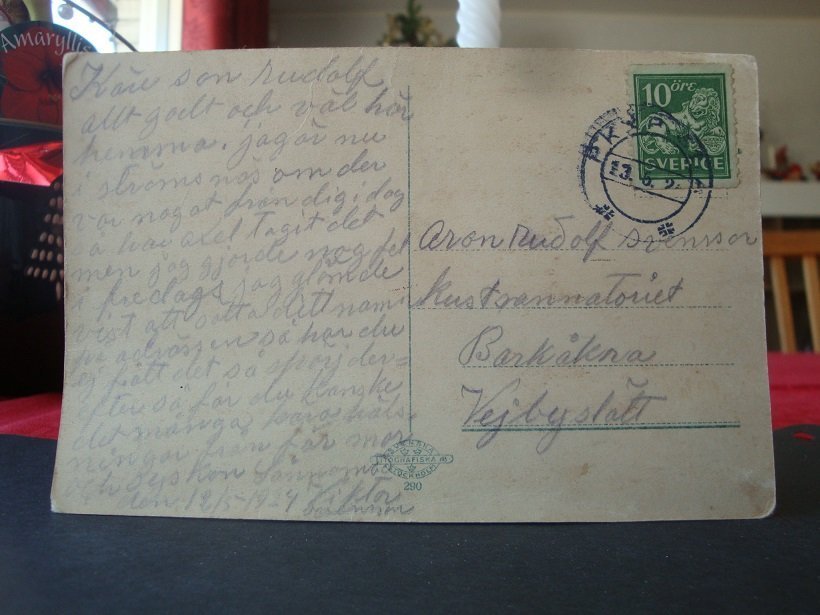 Amaryllis
Kär son rudolf
allt godt och väl här
hemma. jag är nu
i strömsnäs om der
var något från dig i dag
så har axel tagit det
men jag gjorde nog fel
i fredags jag glömde
vist att sätta ditt namn
på adrässen så har du
ej fått det så spörj der-
efter så får du kanske
det många
från far mor
och syskon
den 12/5-19-4 Viktor
Svensson
10 ÖRE
SVERIGE
Aron rudolf Svensson
Kustsannatoriet
Barkåkra
Vejbyslätt
290